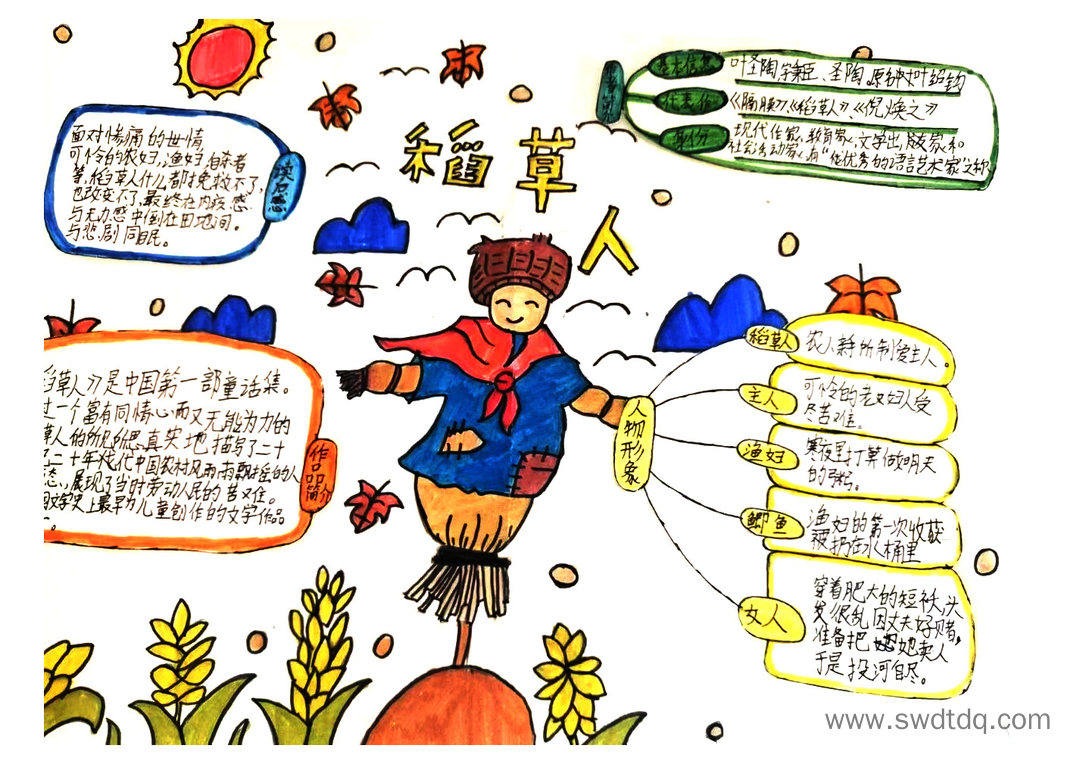 稻草人
基本信息
叶圣陶,字秉臣、圣陶,原名叶绍钧
代表作
《隔膜》、《稻草人》、《倪焕之》
身份
现代作家、教育家、文学出版家和
社会活动家,有“优秀的语言艺术家”之称
读后感
面对惨痛的世情
可怜的农妇,渔妇,自杀者
等,稻草人什么都拯救不了,
也改变不了,最终在内疚感
与无力感中倒在田地间。
与悲剧同眠。
作品简介
稻草人》是中国第一部童话集。
过一个富有同情心而又无能为力的
草人的所见所思真实地描写了二十
二十年代中国农村风雨飘摇的人
态,展现了当时劳动人民的苦难。
文学史上最早为儿童创作的文学作品
人物形象
稻草人
农人亲所制爱主人。
主人
可怜的老妇人受
尽苦难。
渔妇
寒夜里打算做明天
的粥。
鲫鱼
渔妇的第一次收获
被扔在水桶里
女人
穿着肥大的短袄,头
发很乱因丈夫好赌,
准备把她卖人
于是投河自尽。
www.swdtdq.com